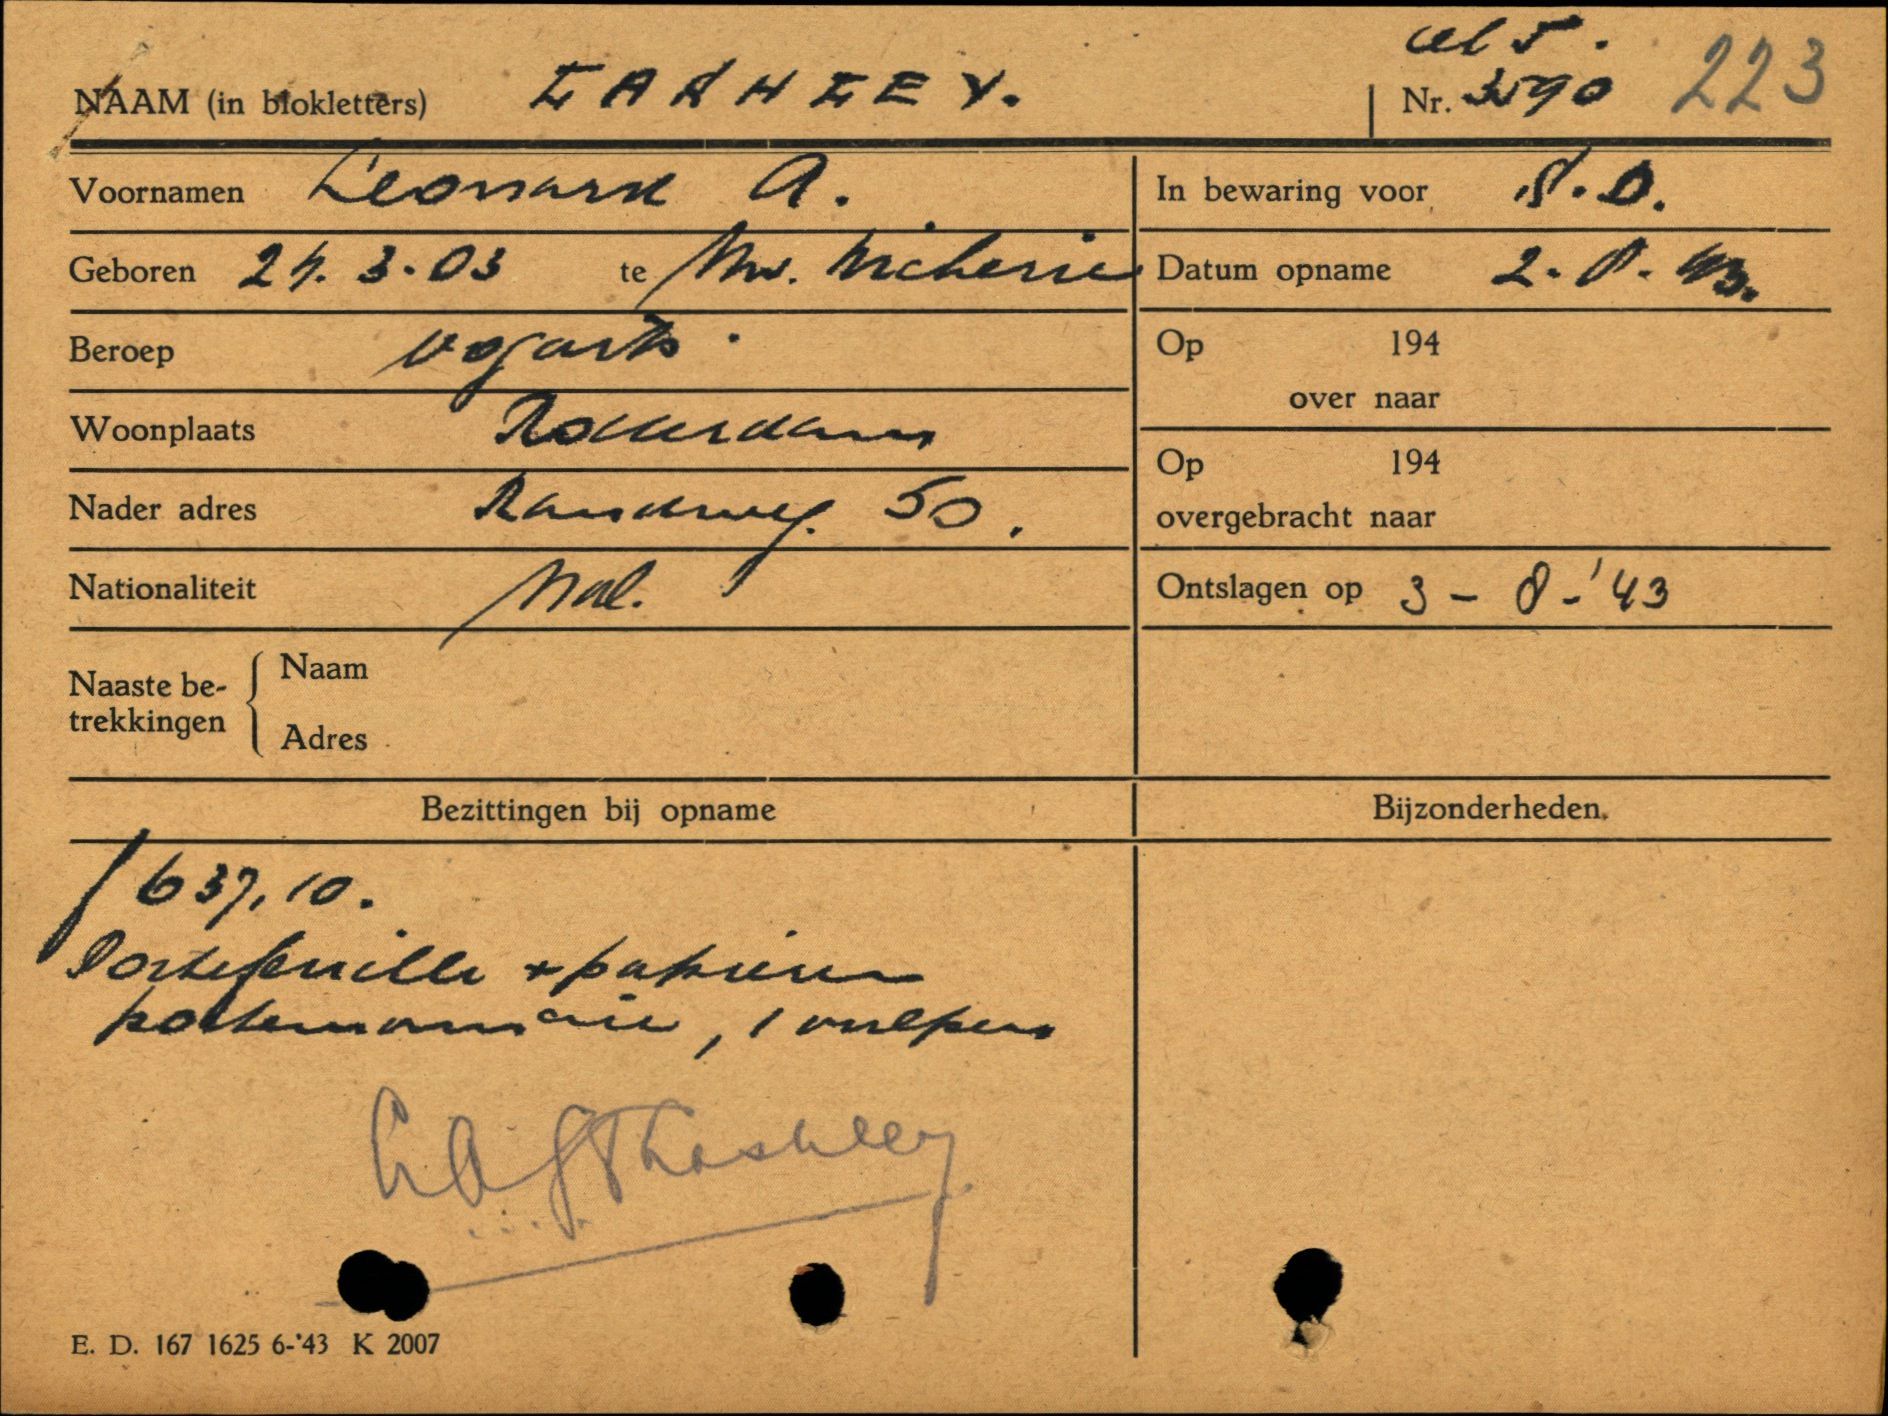 cel 5.
NAAM (in blokletters) LASHLEY. Nr. 3590 223
Voornamen Leonard A.
In bewaring voor S.D.
Geboren 24.3.03 te Nw. Nickerie
Datum opname 2.8.43.
Beroep
Op 194
over naar
Woonplaats Rotterdam
Nader adres Randweg. 50.
Op 194
overgebracht naar
Nationaliteit Ned.
Ontslagen op 3-8-'43
Naaste betrekkingen
Naam
Adres
Bezittingen bij opname
Bijzonderheden.
f 637,10.
Portefeuille + papieren
portemonnaie, 1 vulpen
Lashley
E. D. 167 1625 6-'43 K 2007